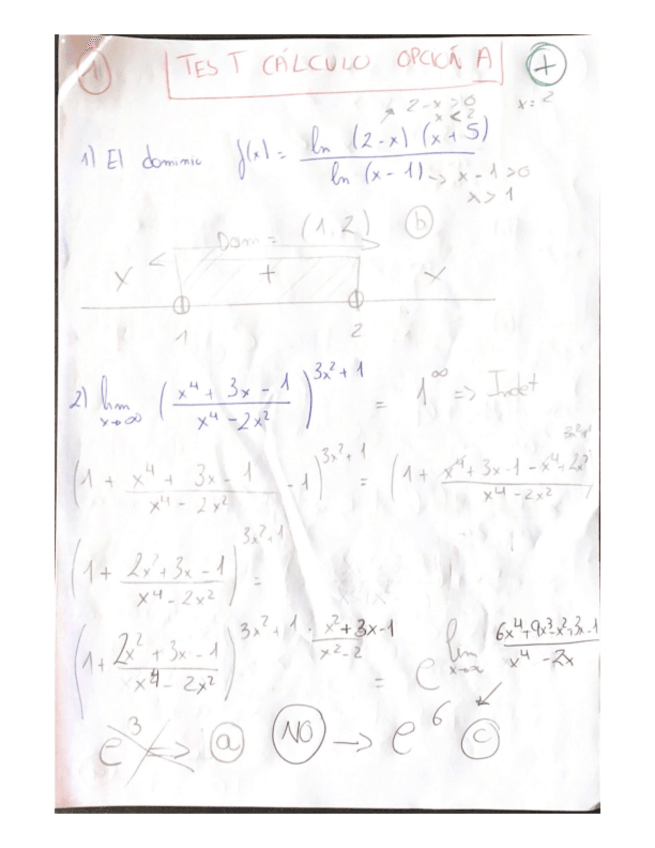 1 TEST CÁLCULO OPCIÓN A +
→ 2-x>0 x=2
x<2
1) El dominio f(x) = ln (2-x) (x+5) / ln (x-1) → x-1>0
x>1
Dom = (1,2) b
x + x
1 2
2) lim x→∞ (x⁴ + 3x - 1 / x⁴ - 2x²)^3x²+1 = 1^∞ => Indet
(1 + x⁴ + 3x - 1 / x⁴ - 2x² - 1)^3x²+1 = (1 + x⁴+3x-1-x⁴+2x² / x⁴-2x²)^3x²+1
(1 + 2x²+3x-1 / x⁴-2x²)^3x²+1 =
(1 + 2x²+3x-1 / x⁴-2x²)^3x²+1 · x²+3x-1 / x²-2 = e^lim x→∞ 6x⁴+9x³-x²+3x-1 / x⁴-2x
e³ => a NO → e⁶ c